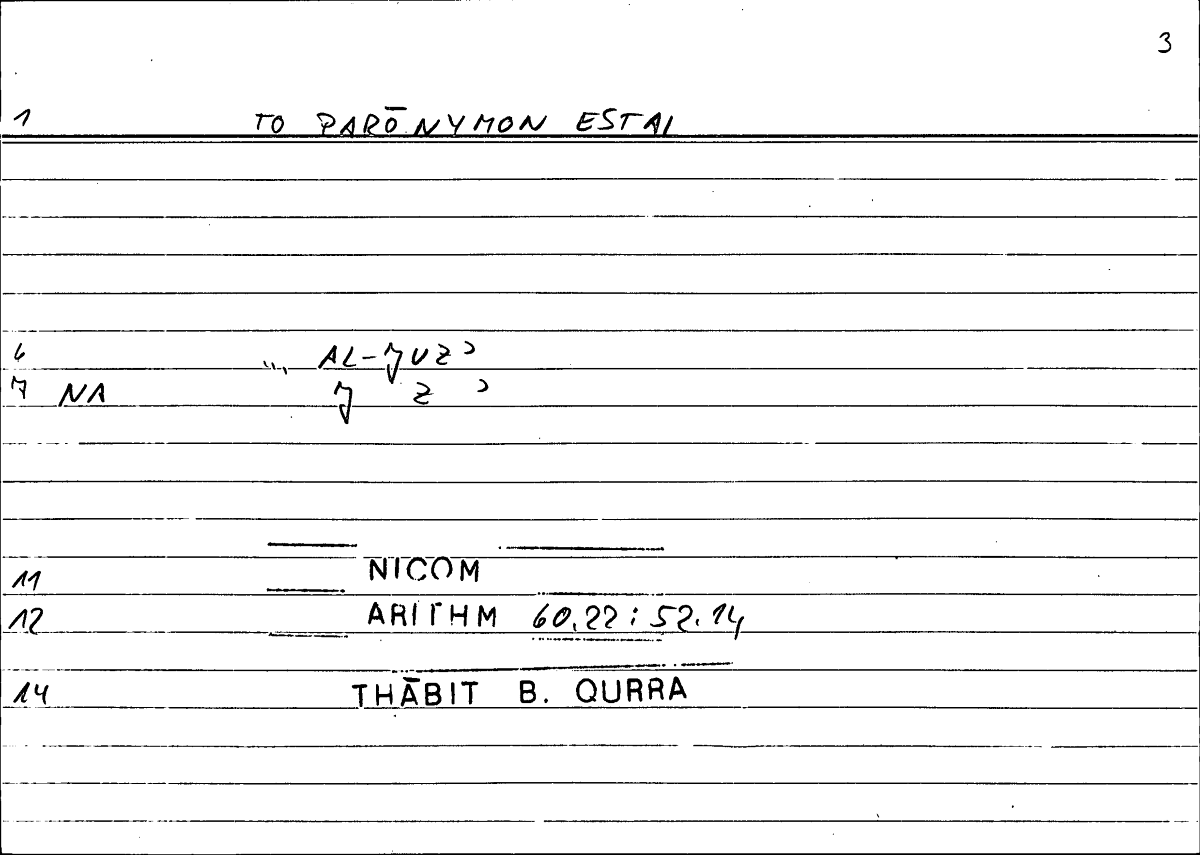 3
1 TO PARŌNYMON ESTAI
6 ... AL-JUZʾ
7 NA J Z ʾ
11 NICOM
12 ARITHM 60.22 : 52.14
14 THĀBIT B. QURRA